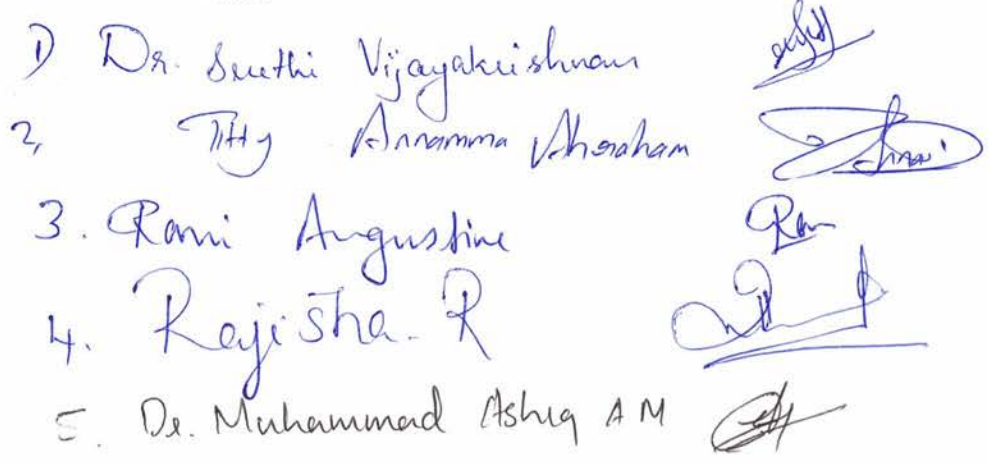 1) Dr. Sruthi Vijayakrishnan
2, Titty Annamma Abraham
3. Rani Augustine Ran
4. Rajisha. R
5. Dr. Muhammad Ashiq A M